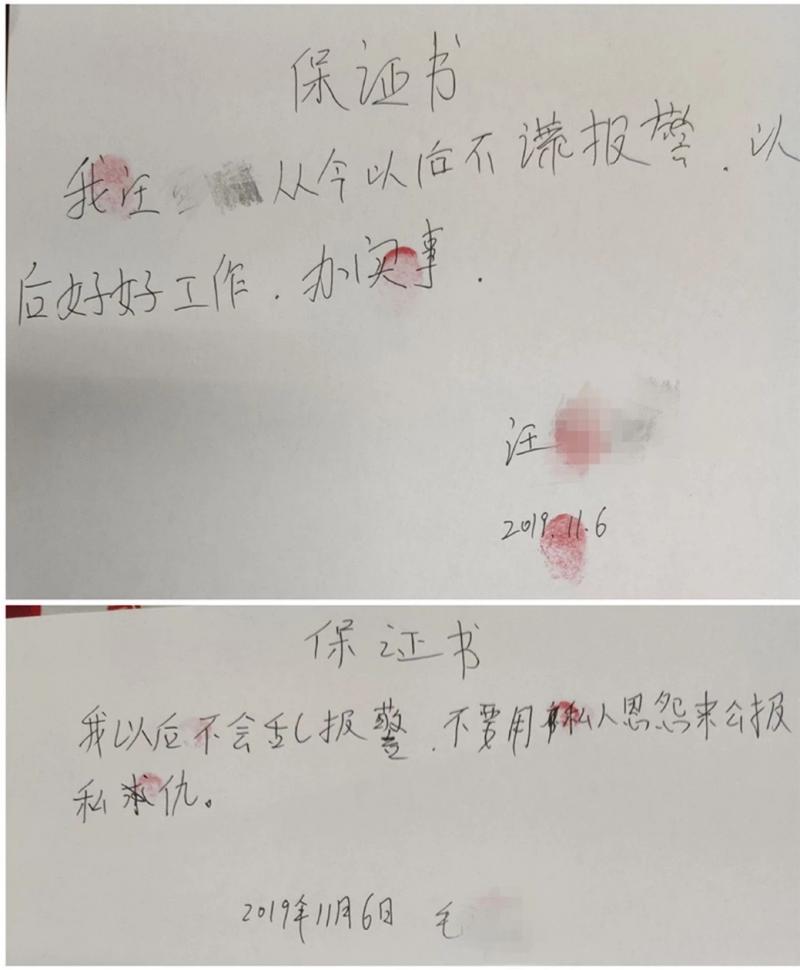 保证书
我汪 从今以后不谎报警.以
后好好工作.办实事.
汪
2019.11.6
保证书
我以后不会乱报警.不要用私人恩怨来公报
私求仇。
2019年11月6日 毛